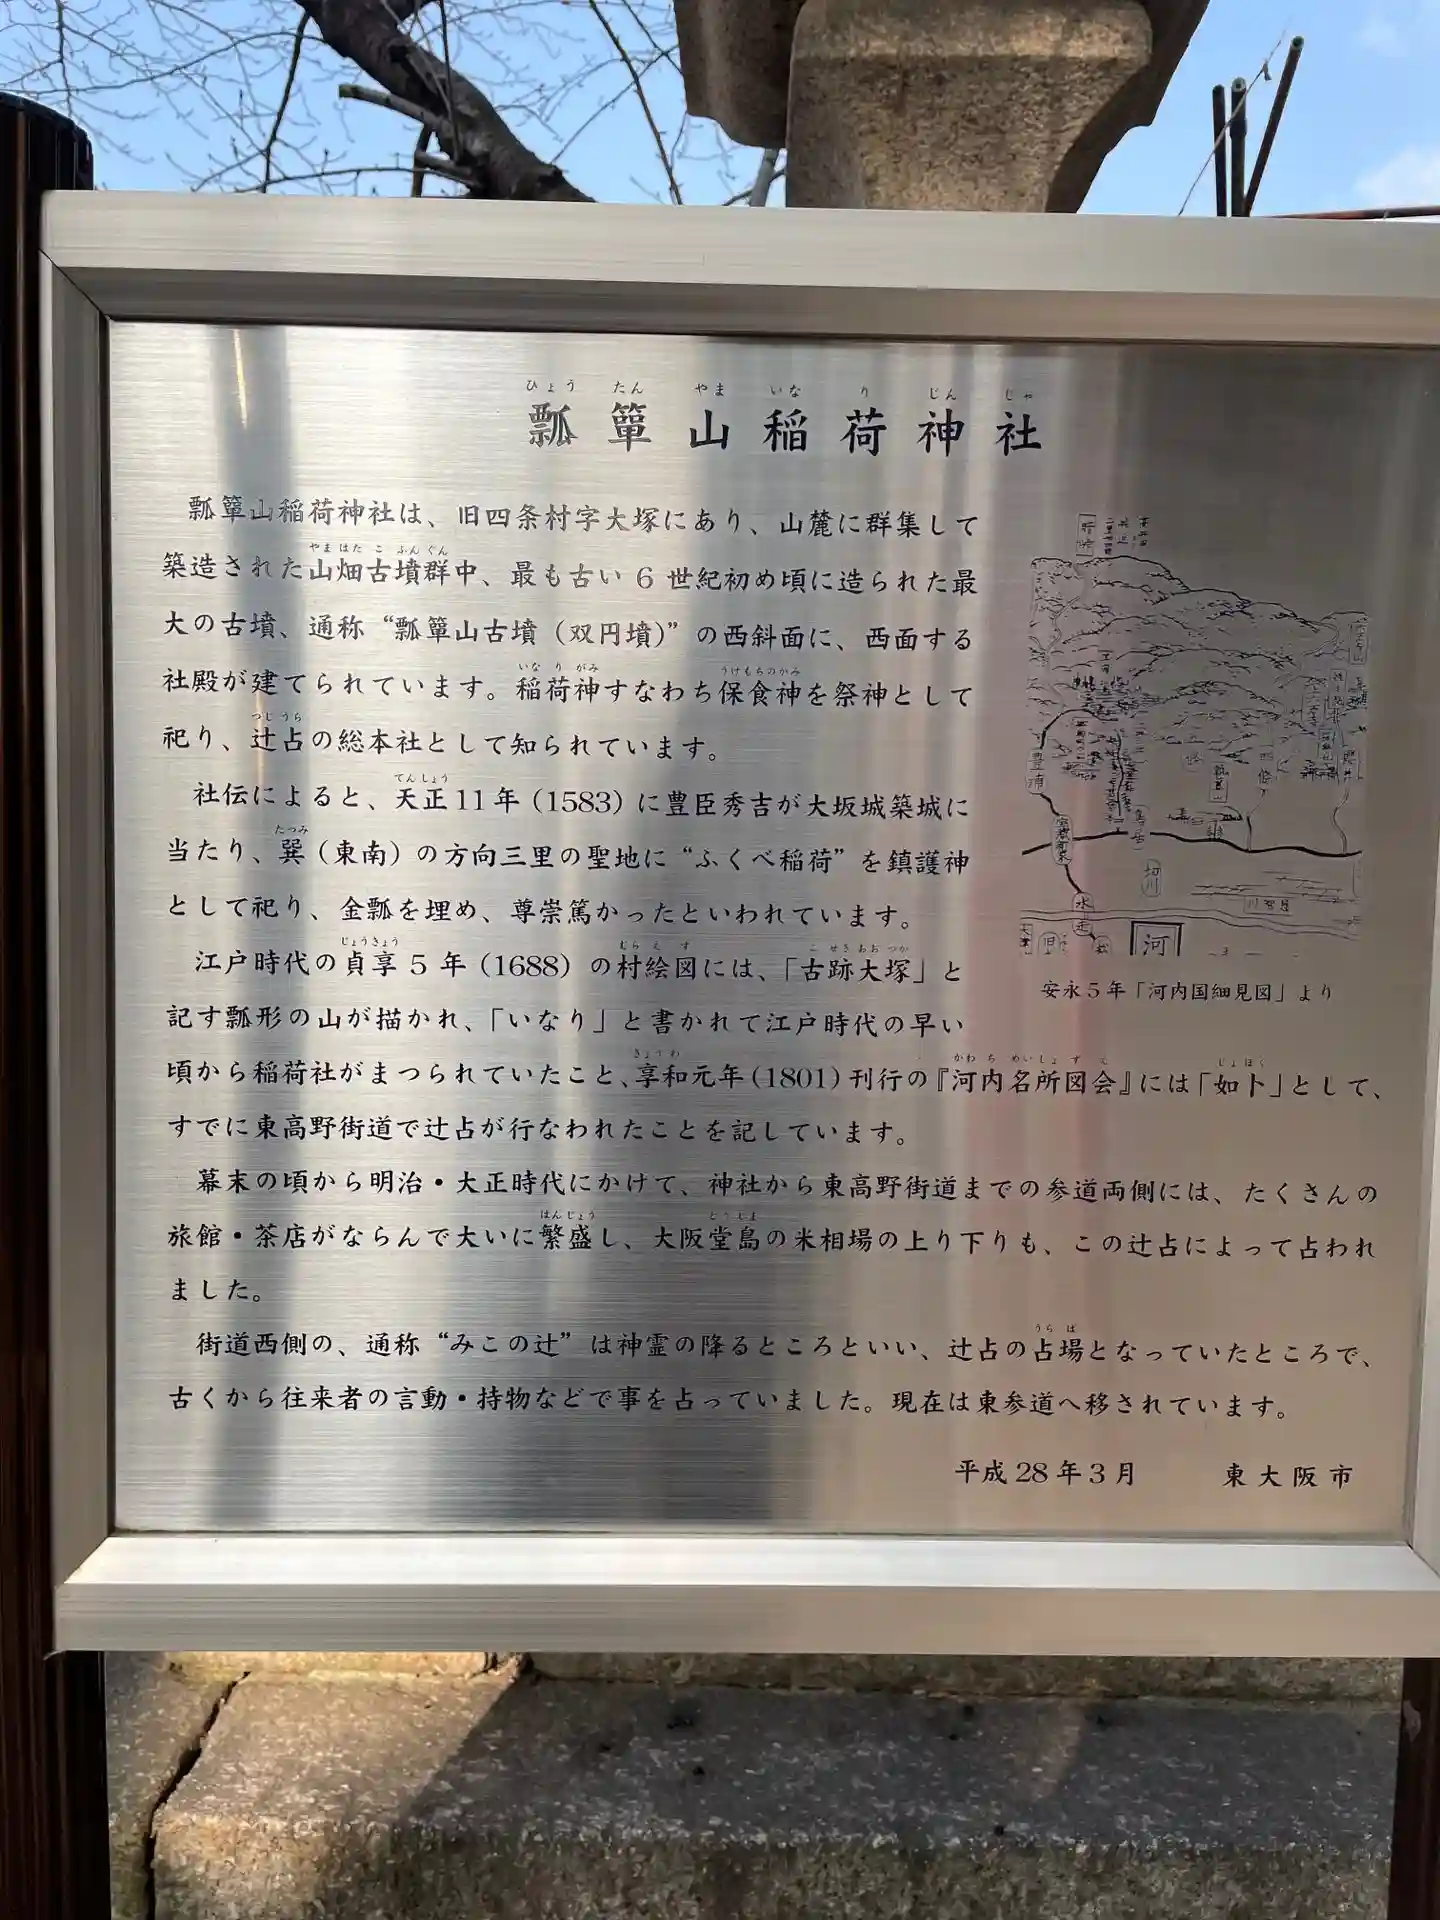 瓢簞山稲荷神社
瓢簞山稲荷神社は、旧四条村字大塚にあり、山麓に群集して
築造された山畑古墳群中、最も古い6世紀初め頃に造られた最
大の古墳、通称“瓢簞山古墳(双円墳)”の西斜面に、西面する
社殿が建てられています。稲荷神すなわち保食神を祭神として
祀り、辻占の総本社として知られています。
社伝によると、天正11年(1583)に豊臣秀吉が大坂城築城に
当たり、巽(東南)の方向三里の聖地に“ふくべ稲荷”を鎮護神
として祀り、金瓢を埋め、尊崇篤かったといわれています。
江戸時代の貞享5年(1688)の村絵図には、「古跡大塚」と
記す瓢形の山が描かれ、「いなり」と書かれて江戸時代の早い
頃から稲荷社がまつられていたこと、享和元年(1801)刊行の『河内名所図会』には「如卜」として、
すでに東高野街道で辻占が行なわれたことを記しています。
幕末の頃から明治・大正時代にかけて、神社から東高野街道までの参道両側には、たくさんの
旅館・茶店がならんで大いに繁盛し、大阪堂島の米相場の上り下りも、この辻占によって占われ
ました。
街道西側の、通称“みこの辻”は神霊の降るところといい、辻占の占場となっていたところで、
古くから往来者の言動・持物などで事を占っていました。現在は東参道へ移されています。
平成28年3月 東大阪市
豊浦
水走
河
安永5年「河内国細見図」より